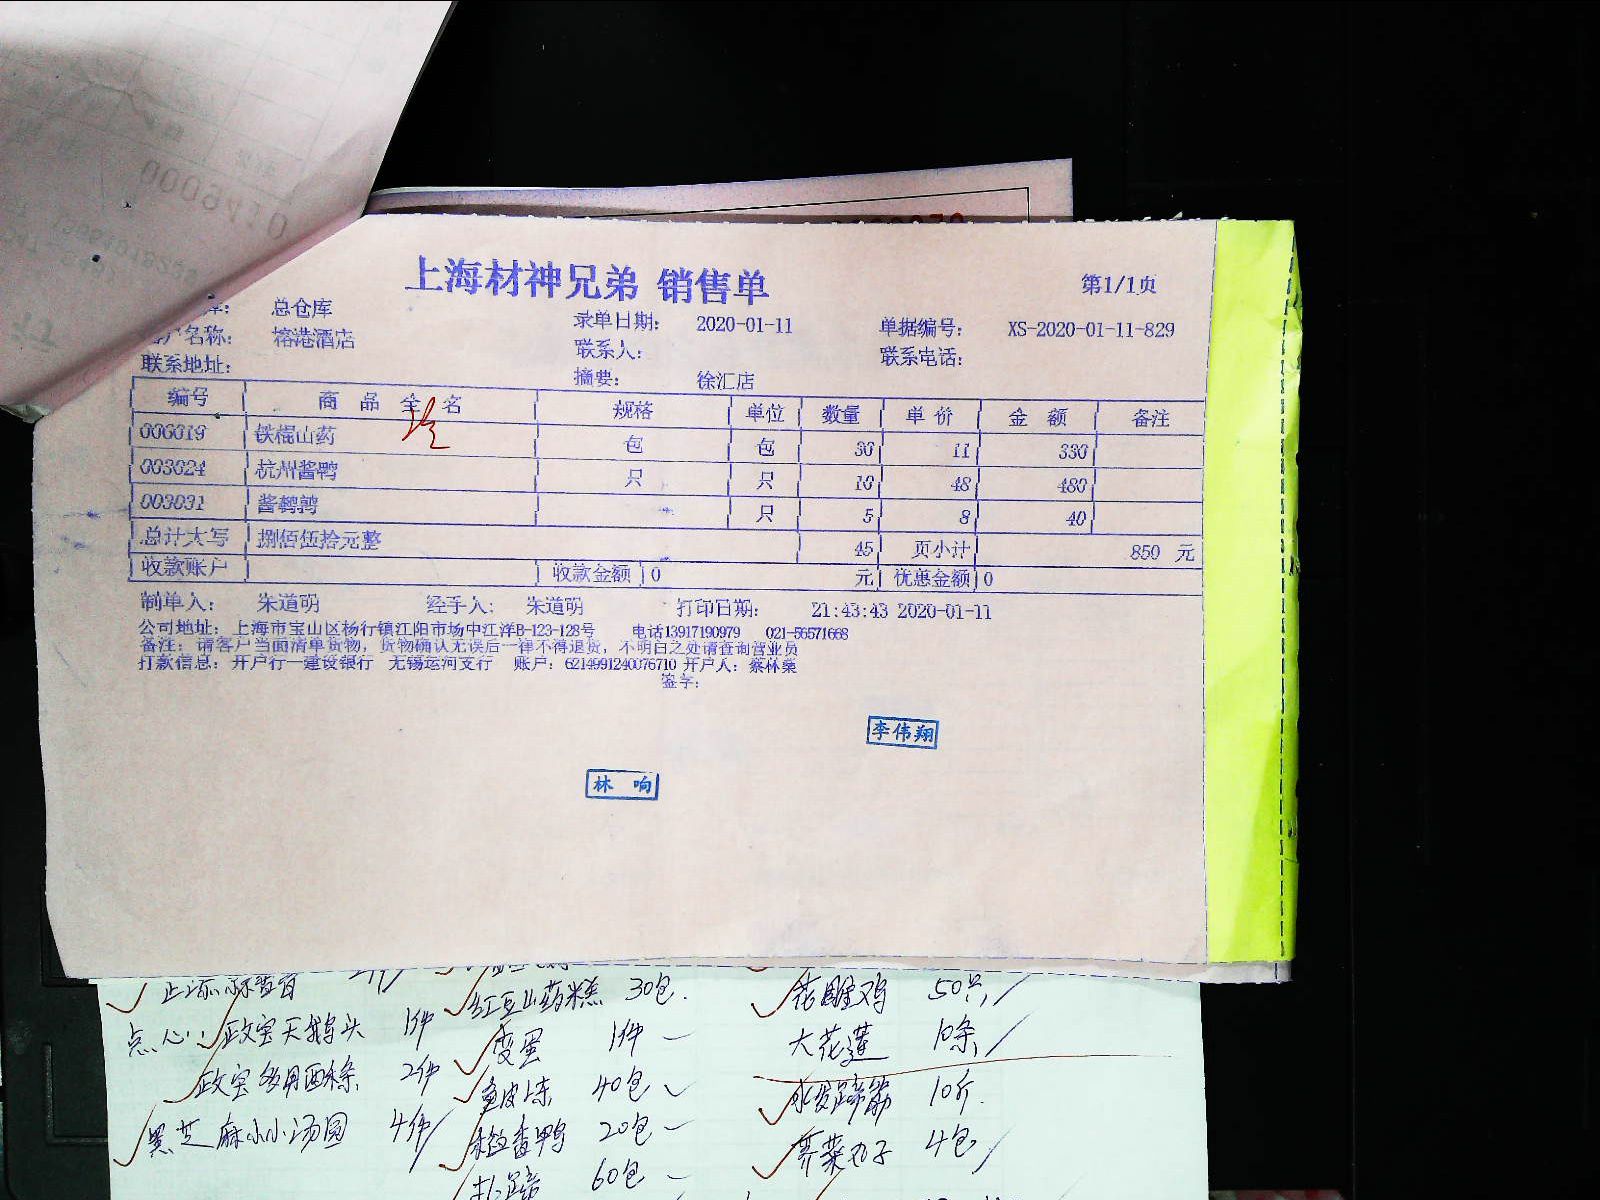 上海材神兄弟 销售单
第1/1页
总仓库
录单日期: 2020-01-11 单据编号: XS-2020-01-11-829
户名称: 榕港酒店
联系人: 联系电话:
联系地址:
摘要: 徐汇店
编号 商品全名 规格 单位 数量 单价 金额 备注
006019 铁棍山药 包 包 30 11 330
003024 杭州酱鸭 只 只 10 48 480
003031 酱鹌鹑 只 5 8 40
总计大写 捌佰伍拾元整 45 页小计 850 元
收款账户 收款金额 0 元 优惠金额 0
制单人: 朱道明 经手人: 朱道明 打印日期: 21:43:43 2020-01-11
公司地址: 上海市宝山区杨行镇江阳市场中江洋B-123-128号 电话13917190979 021-56571668
备注: 请客户当面清单货物, 货物确认无误后一律不得退货, 不明白之处请查询营业员
打款信息: 开户行—建设银行 无锡运河支行 账户: 6214991240076710 开户人: 蔡林燊
签字:
李伟翔
林响
红豆山药糕 30包.
花雕鸡 50只
点心: 政宝天鹅头 1件
变蛋 1件
大花莲 10条
政宝 2件
鱼皮冻 40包
水发蹄筋 10斤.
黑芝麻小小汤圆 4件
20包
荠菜丸子 4包
扎蹄 60包